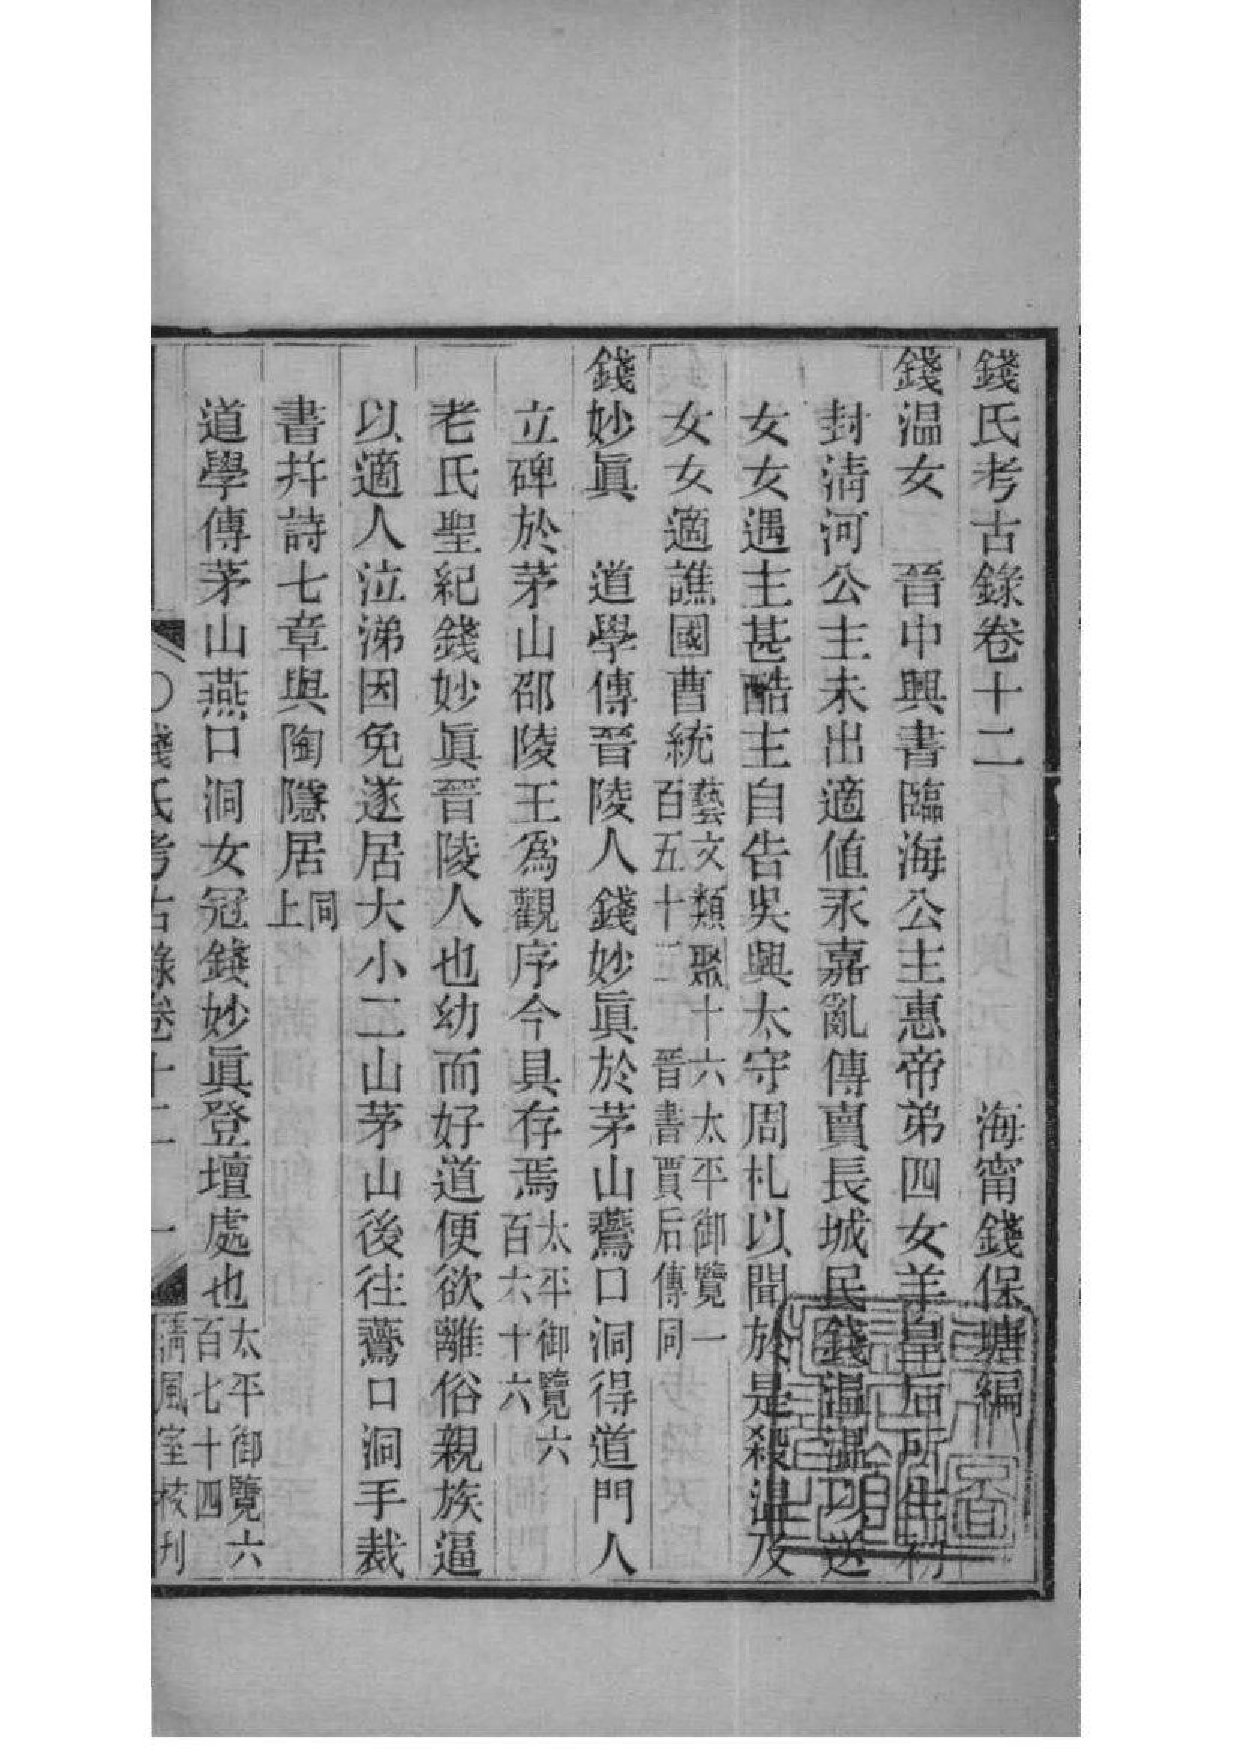 錢氏考古錄卷十二　海甯錢保塘編
錢温女　晉中興書臨海公主惠帝弟四女羊皇后所生初
封清河公主未出適值永嘉亂傳賣長城民錢温温以送
女女遇主甚酷主自告吳興太守周札以聞於是殺温及
女女適譙國曹統藝文類聚十六太平御覽一
百五十二晉書賈后傳同
錢妙眞　道學傳晉陵人錢妙眞於茅山鷰口洞得道門人
立碑於茅山邵陵王爲觀序今具存焉太平御覽六
百六十六
老氏聖紀錢妙眞晉陵人也幼而好道便欲離俗親族逼
以適人泣涕因免遂居大小二山茅山後往鷰口洞手裁
書幷詩七章與陶隱居同
上
道學傳茅山燕口洞女冠錢妙眞登壇處也太平御覽六
百七十四
錢氏考古錄卷十二　一　清風室校刋